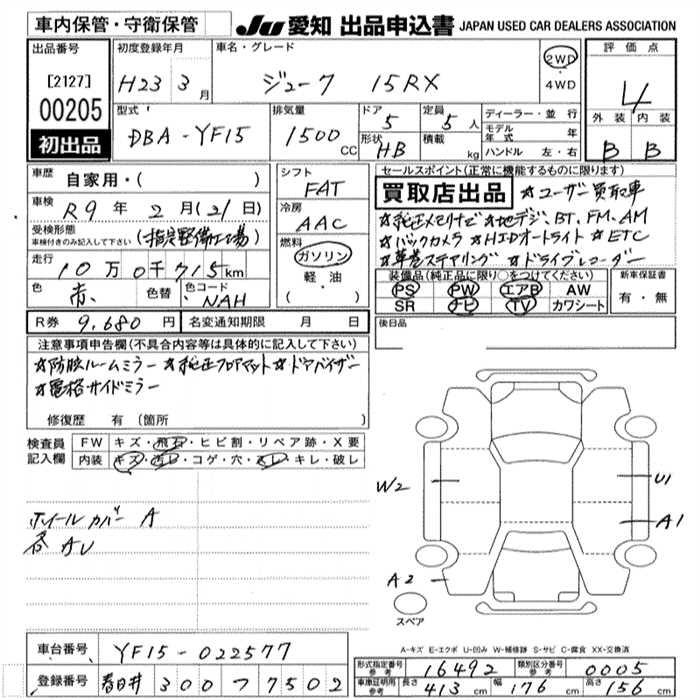 車内保管・守衛保管
JU 愛知 出品申込書 JAPAN USED CAR DEALERS ASSOCIATION
出品番号
[2127]
00205
初出品
初度登録年月
H23 3月
車名・グレード
ジューク 15RX
2WD
・
4WD
評価点
4
外装 内装
B B
型式
DBA-YF15
排気量
1500 CC
ドア 5
形状 HB
定員 5人
積載 kg
ディーラー・並行
モデル年式 年
ハンドル 左・右
車歴 自家用・( )
車検 R9年2月(21日)
受検形態
車検付きのみ記入して下さい (指定整備工場)
走行 10万0千715km
色 赤 色替 色コード NAH
シフト
FAT
冷房
AAC
燃料
ガソリン
軽油
( )
セールスポイント(正常に機能するものに限ります)
買取店出品 ☆ユーザー買取車
☆純正メモリナビ ☆地デジ,BT,FM,AM
☆バックカメラ ☆HIDオートライト ☆ETC
☆革巻ステアリング ☆ドライブレコーダー
装備品(純正品に限り○をつけてください)
PS PW エアB AW
SR ナビ TV カワシート
新車保証書
有・無
R券 9,680円 名変通知期限 月 日
後日品
注意事項申告欄(不具合内容等は具体的に記入して下さい)
☆防眩ルームミラー ☆純正フロアマット ☆ドアバイザー
☆電格サイドミラー
修復歴 有 (箇所 )
検査員記入欄
FW キズ・飛石・ヒビ割・リペア跡・X要
内装 キズ・汚レ・コゲ・穴・スレ・キレ・破レ
ホイールカバー A
各 AU
W2
U1
A1
A2
スペア
A-キズ E-エクボ U-凹み W-補修跡 S-サビ C-腐食 XX-交換済
車台番号 YF15-022577
登録番号 春日井 300 つ 7502
形式指定番号 参考 16492
類別区分番号 参考 0005
車庫証明用 参考 長さ 413cm 幅 176cm 高さ 156cm